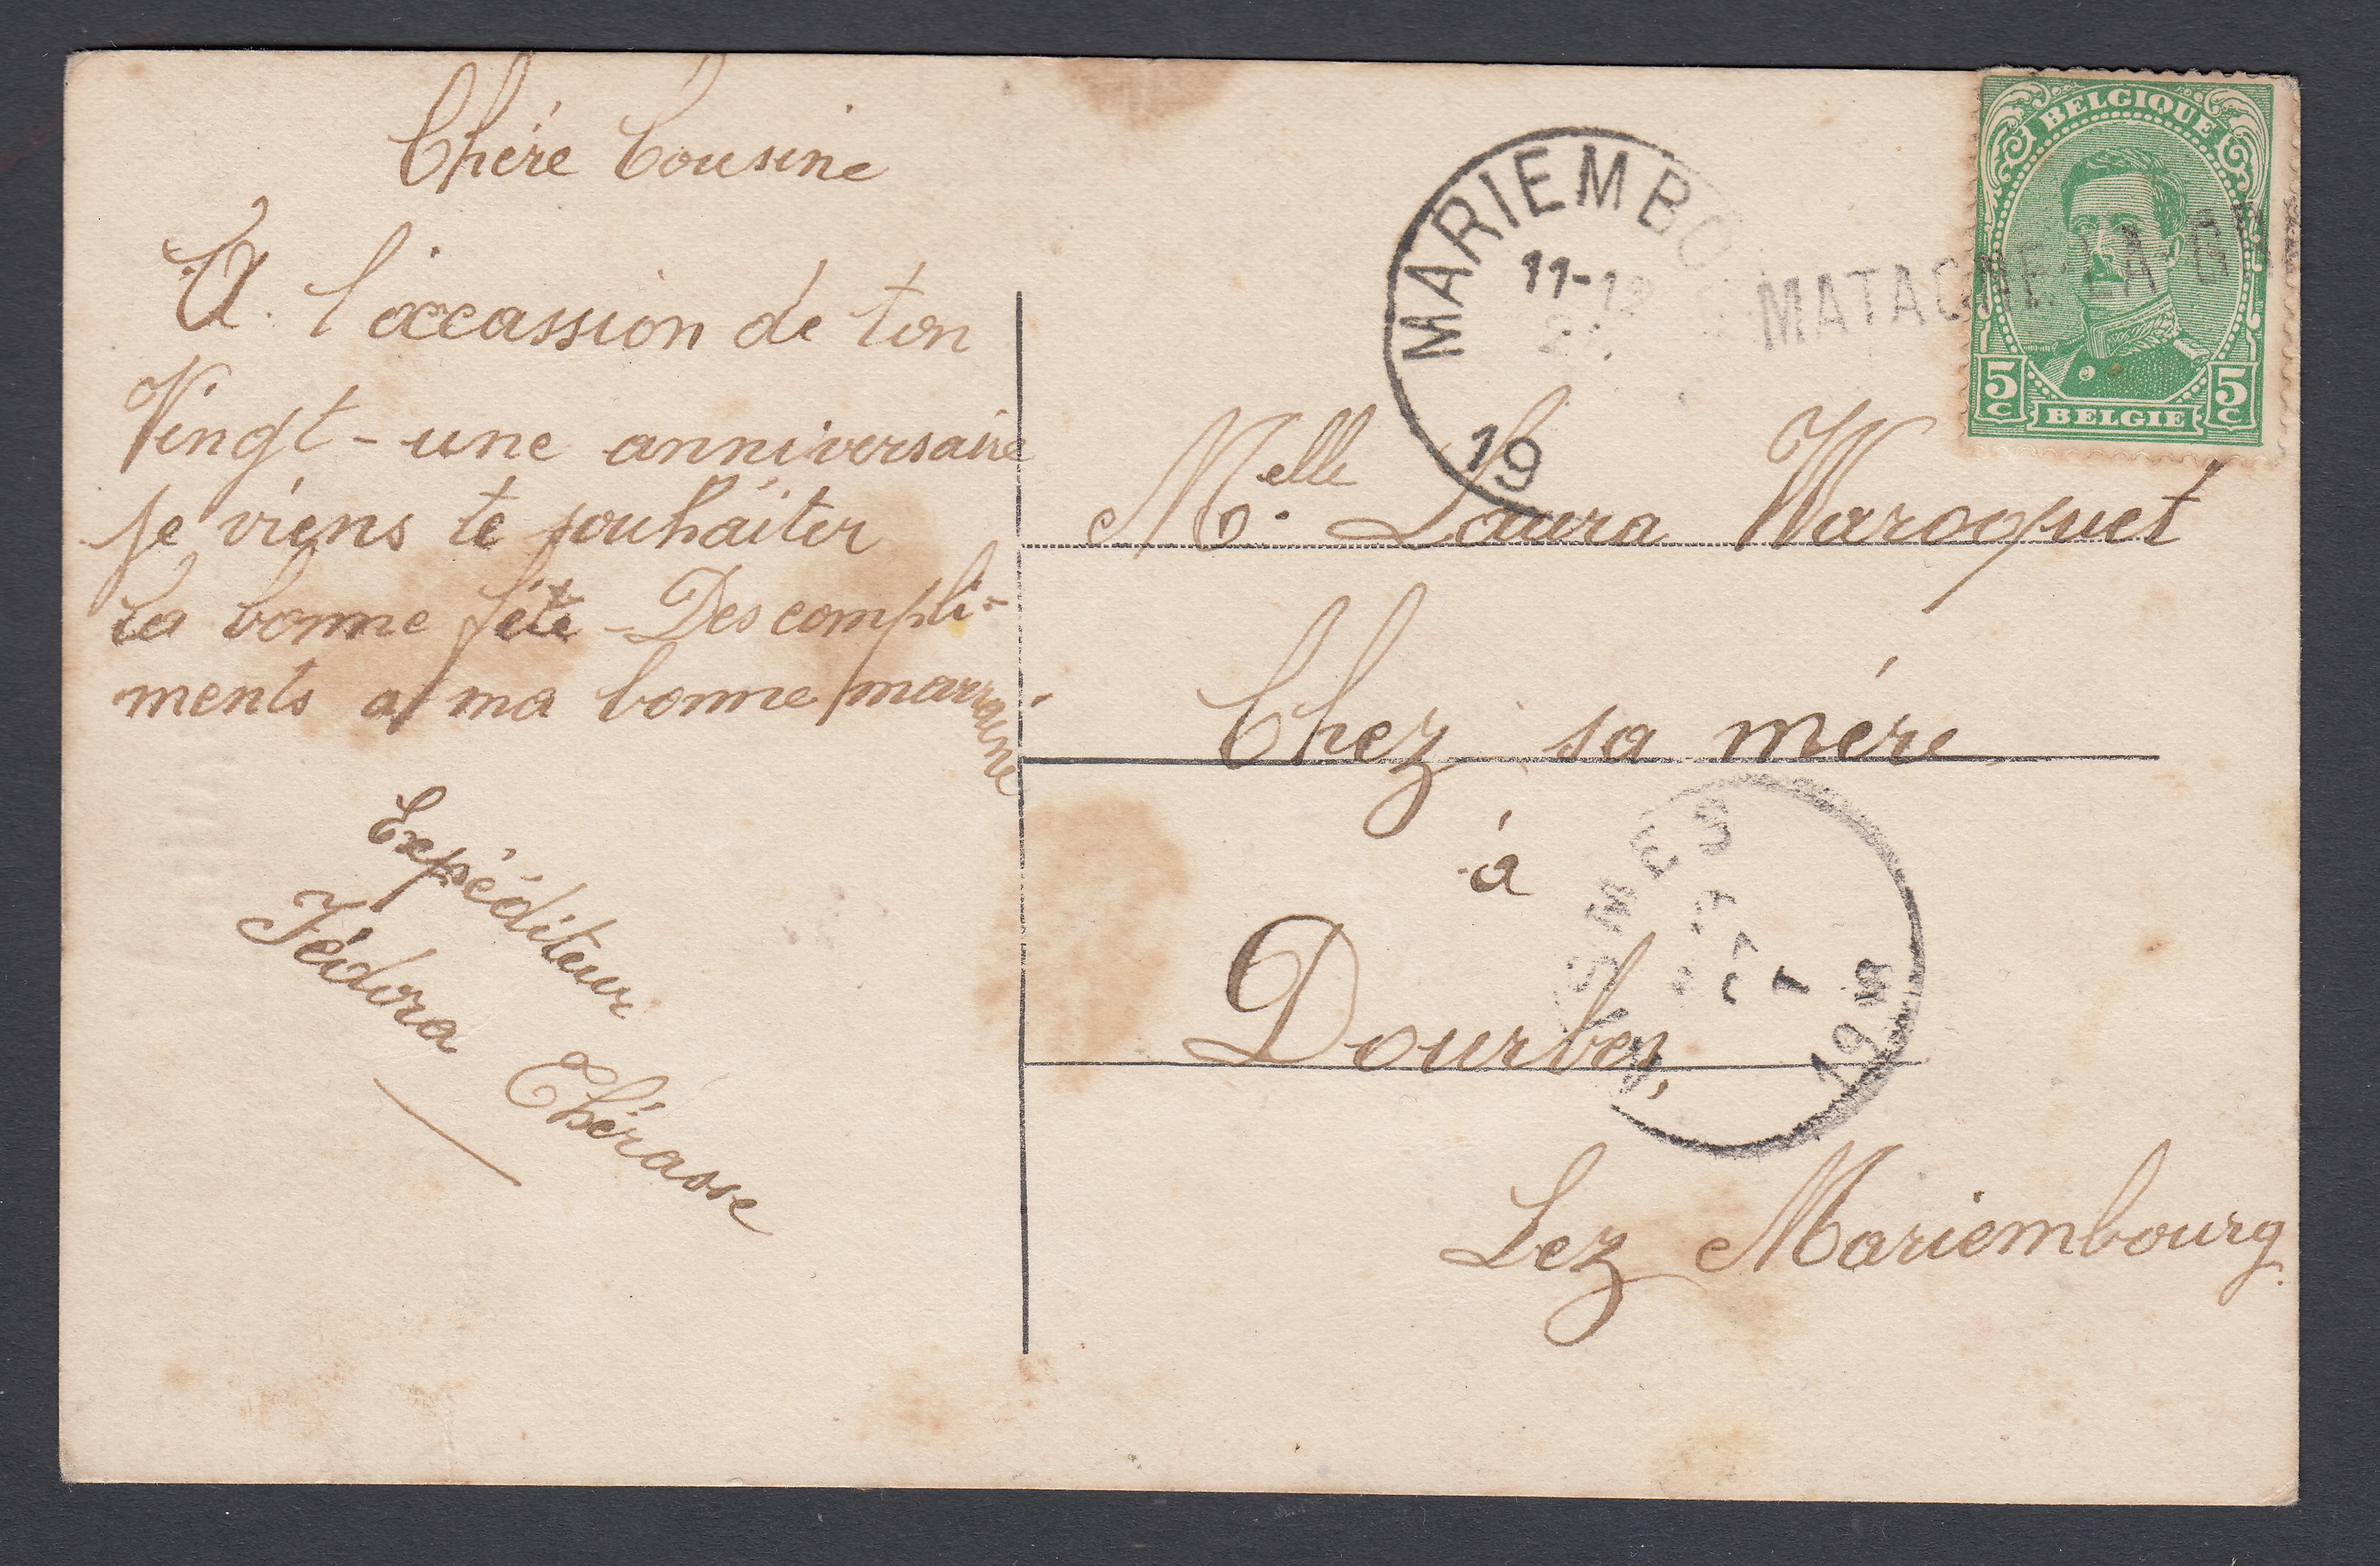 Chére Cousine
A l'occassion de ton
Vingt-une anniversaire
je viens te souhaiter
ta bonne féte - Des compli-
ments a ma bonne marraine
Expéditeur
Fédora Thérasse
BELGIQUE
5c 5c
BELGIE
MATAGNE-LA-G
MARIEMBO
11-12
19
Melle. Laura Waroquet
Chez sa mére
à
Dourbes,
Lez Mariembourg.
SMES
19